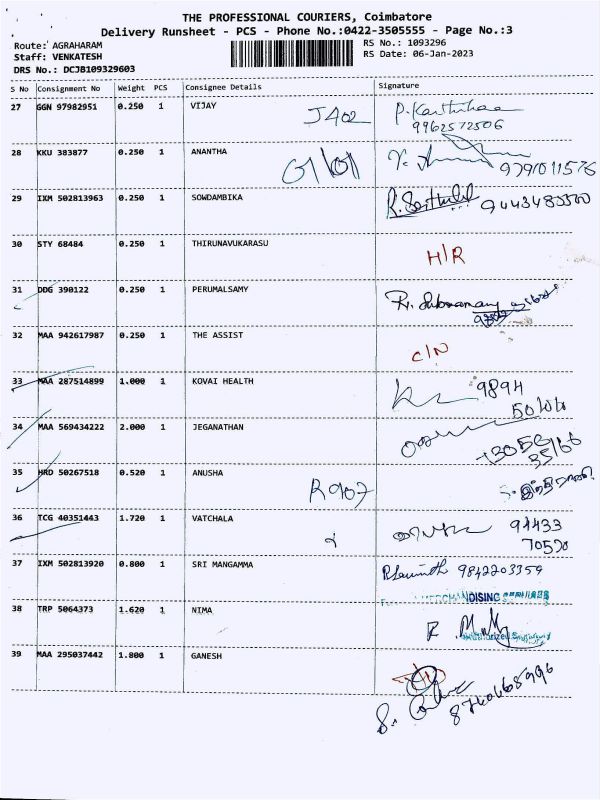 THE PROFESSIONAL COURIERS, Coimbatore
Delivery Runsheet - PCS - Phone No.:0422-3505555 - Page No.:3
Route: AGRAHARAM
RS No.: 1093296
Staff: VENKATESH
RS Date: 06-Jan-2023
DRS No.: DCJB109329603
S No Consignment No Weight PCS Consignee Details Signature
27 GGN 97982951 0.250 1 VIJAY J402 P. Karthikaa
9962572506
28 KKU 383877 0.250 1 ANANTHA 9791011576
29 IXM 502813963 0.250 1 SOWDAMBIKA R. Senthil
30 STY 68484 0.250 1 THIRUNAVUKARASU H/R
31 DDG 390122 0.250 1 PERUMALSAMY
32 MAA 942617987 0.250 1 THE ASSIST C/N
33 MAA 287514899 1.000 1 KOVAI HEALTH 9894
34 MAA 569434222 2.000 1 JEGANATHAN
35 HRD 50267518 0.520 1 ANUSHA R907
36 TCG 40351443 1.720 1 VATCHALA 94433
70570
37 IXM 502813920 0.800 1 SRI MANGAMMA 9842203359
38 TRP 5064373 1.620 1 NIMA
39 MAA 295037442 1.800 1 GANESH